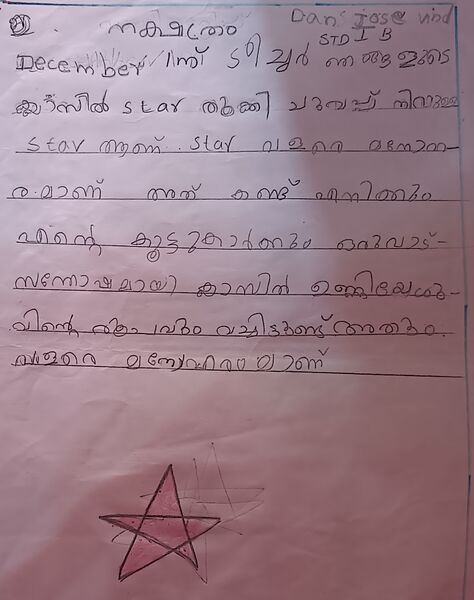 Dan Jose Vind
നക്ഷത്രം
STD I B
December 1ന് ടീച്ചർ ഞങ്ങളുടെ
ക്ലാസിൽ star തൂക്കി ചുവപ്പ് നിറമുള്ള
star ആണ്. star വളരെ മനോഹ-
രമാണ് അത് കണ്ട് എനിക്കും
എന്റെ കൂട്ടുകാർക്കും ഒരുപാട്-
സന്തോഷമായി ക്ലാസിൽ ഉണ്ണിയേശു-
വിന്റെ വച്ചിട്ടുണ്ട് അതും.
വളരെ മനോഹരമാണ്